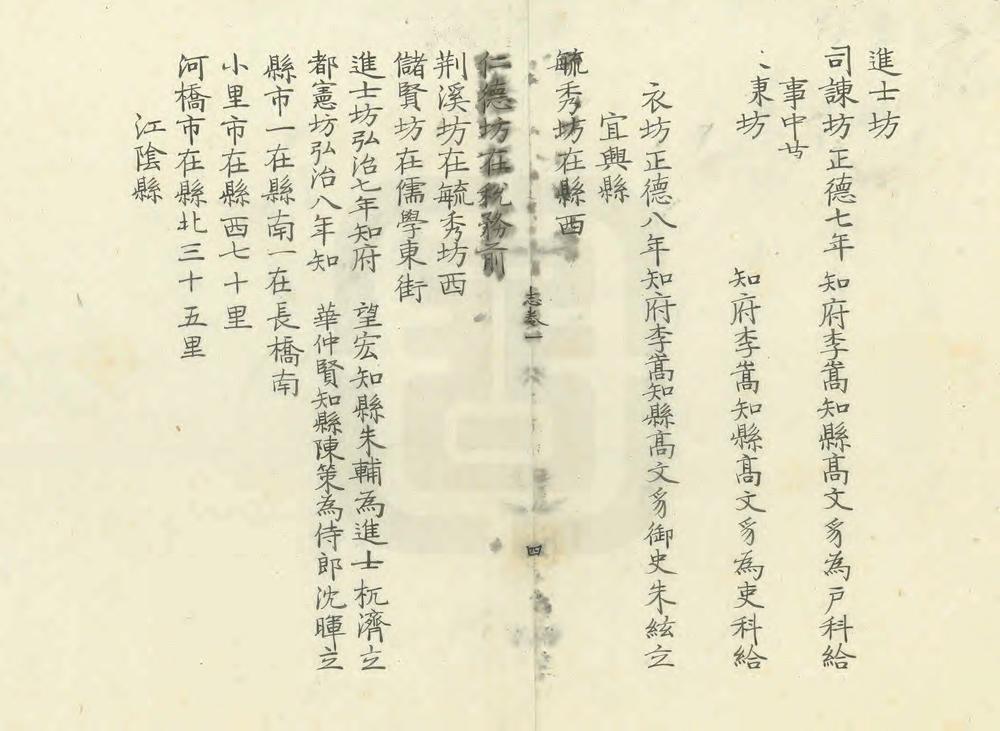 進士坊
司諫坊正德七年 知府李嵩知縣髙文豸為户科給
事中
東坊 知府李嵩知縣髙文豸為吏科給
衣坊正德八年知府李嵩知縣髙文豸御史朱絃立
宜興縣
毓秀坊在縣西
志卷一
四
仁德坊在稅務前
荆溪坊在毓秀坊西
儲賢坊在儒學東街
進士坊弘治七年知府 望宏知縣朱輔為進士杭濟立
都憲坊弘治八年知 華仲賢知縣陳策為侍郎沈暉立
縣市一在縣南一在長橋南
小里市在縣西七十里
河橋市在縣北三十五里
江陰縣